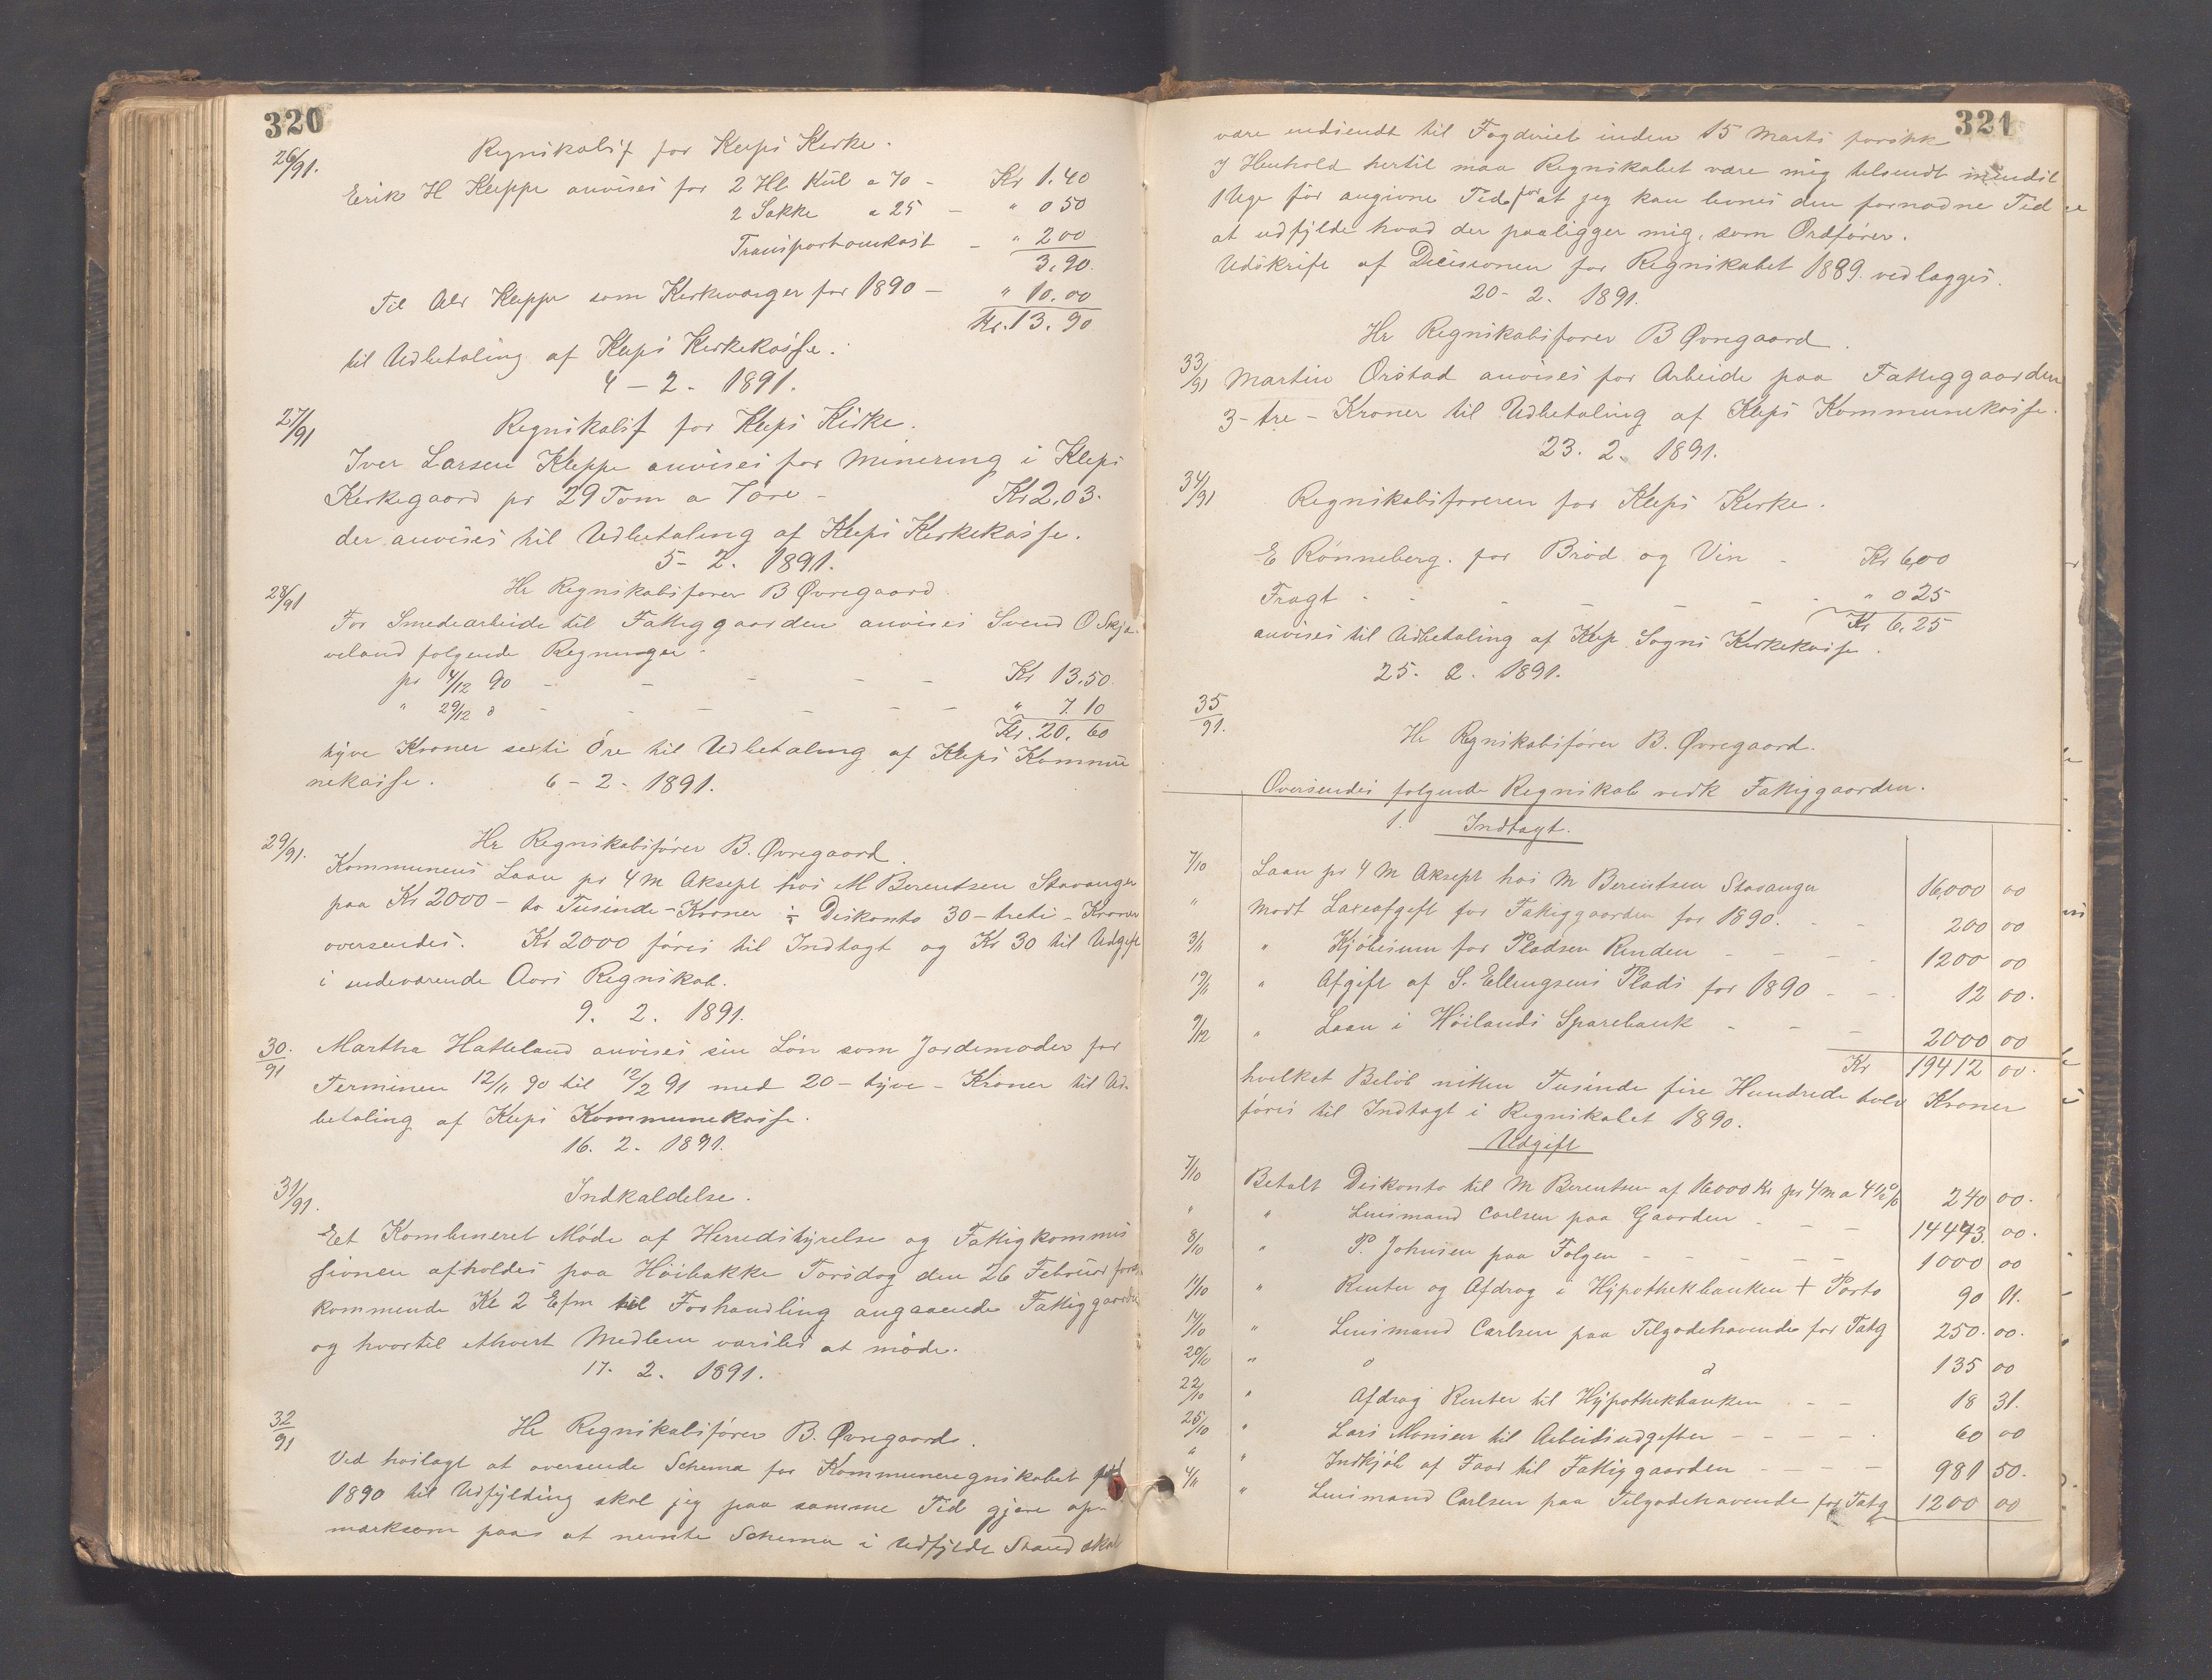 320
26/91. Regnskabsf for Kleps Kirke.
Erik H Kleppe anvises for 2 Hl Kul a 70 - Kr 1.40
2 Sække a 25 - " 0 50
Transportomkost - " 2 00
3.90.
Til Alv Kleppe som Kirkeværger for 1890 - " 10.00
Kr. 13.90
til Udbetaling af Kleps Kirkekasse.
4 - 2 - 1891.
27/91 Regnskabsf for Kleps Kirke.
Iver Larsen Kleppe anvises for Minering i Kleps
Kirkegaard pr 29 Tom a 7 øre - Kr 2.03.
der anvises til Udbetaling af Kleps Kirkekasse.
5 - 2. 1891.
28/91 Hr Regnskabsfører B Øvregaard
For Smedearbeide til Fattiggaarden anvises Svend O Skjæ-
veland følgende Regninger.
pr 4/12 90 - - - - - Kr 13.50.
" 29/12 d - - - - - " 7.10
Kr. 20.60
tyve Kroner sexti Øre til Udbetaling af Kleps Kommu
nekasse. 6 - 2 - 1891.
29/91. Hr Regnskabsfører B. Øvregaard.
Kommunens Laan pr 4 M Aksept hos M Berentsen Stavanger
paa Kr 2000 - to Tusinde - Kroner ÷ Diskonto 30 - treti - Kroner
oversendes. Kr 2000 føres til Indtægt og Kr 30 til Udgift
i indeværende Aars Regnskab.
9. 2. 1891.
30/91 Martha Hatteland anvises sin Løn som Jordemoder for
Terminen 12/11 90 til 12/2 91 med 20 - tyve - Kroner til Ud-
betaling af Kleps Kommunekasse.
16. 2. 1891.
31/91. Indkaldelse.
Et Kombineret Møde af Herredstyrelse og Fattigkommis
sionen afholdes paa Høibakke Torsdag den 26 Februar først
kommende Kl 2 Efm til Forhandling angaaende Fattiggaarden
og hvortil ethvert Medlem varsles at møde.
17. 2. 1891.
32/91 Hr Regnskabsfører B. Øvregaard.
Ved hoslagt at oversende Schema for Kommuneregnskabet for
1890 til Udfylding skal jeg paa samme Tid gjøre op-
mærksom paa at nævnte Schema i Udfyldt Stand skal
321
være indsendt til Fogderiet inden 15 Marts førstk
I Henhold hertil maa Regnskabet være mig tilsendt mindst
1 Uge før angivne Tid for at jeg kan levnes den fornødne Tid
at udfylde hvad der paaligger mig, som Ordfører.
Udskrift af Decisionen for Regnskabet 1889 vedlægges.
20 - 2. 1891.
Hr Regnskabsfører B Øvregaard.
33/91 Martin Orstad anvises for Arbeide paa Fattiggaarden
3 - tre - Kroner til Udbetaling af Kleps Kommunekasse.
23. 2. 1891.
34/91 Regnskabsføreren for Kleps Kirke.
E Rønneberg. for Brød og Vin - Kr 6,00
Fragt - - - - - - " 0 25
Kr 6,25
anvises til Udbetaling af Klep Sogns Kirkekasse.
25. 2. 1891.
35/91. Hr Regnskabsfører B. Øvregaard.
Oversendes følgende Regnskab vedk Fattiggaarden.
1. Indtægt.
7/10 Laan pr 4 M Aksept hos M Berentsen Stavanger 16,000 00
" Modt Laxeafgift for Fattiggaarden for 1890. - - 200 00
3/11 " Kjøbesum for Pladsen Renden - - - - 1200 00
19/11 " Afgift af S. Ellingsens Plads for 1890 - - - 12 00.
9/12 " Laan i Høilands Sparebank - - - 2000 00
Kr 19412 00.
hvilket Beløb nitten Tusinde fire Hundrede tolv Kroner
føres til Indtægt i Regnskabet 1890.
Udgift
7/10 Betalt Diskonto til M Berentsen af 16000 Kr pr 4 m a 4 1/2 % 240 00.
" " Lensmand Carlsen paa Gaarden - - - 14443. 00.
8/10 " P. Johnsen paa Følgen - - - - - 1000 00
11/10 " Renter og Afdrag i Hypothekbanken + Porto 90 11.
14/10 " Lensmand Carlsen paa Tilgodehavende for Fatg 250. 00.
20/10 " d d 135 00
22/10 " Afdrag Renter til Hypothekbanken - - 18 31.
25/10 " Lars Monsen til Arbeidsudgifter - - - - - 60 00
" " Indkjøb af Faar til Fattiggaarden - - - - 981 50.
4/11 " Lensmand Carlsen paa Tilgodehavende for Fatg 1200 00